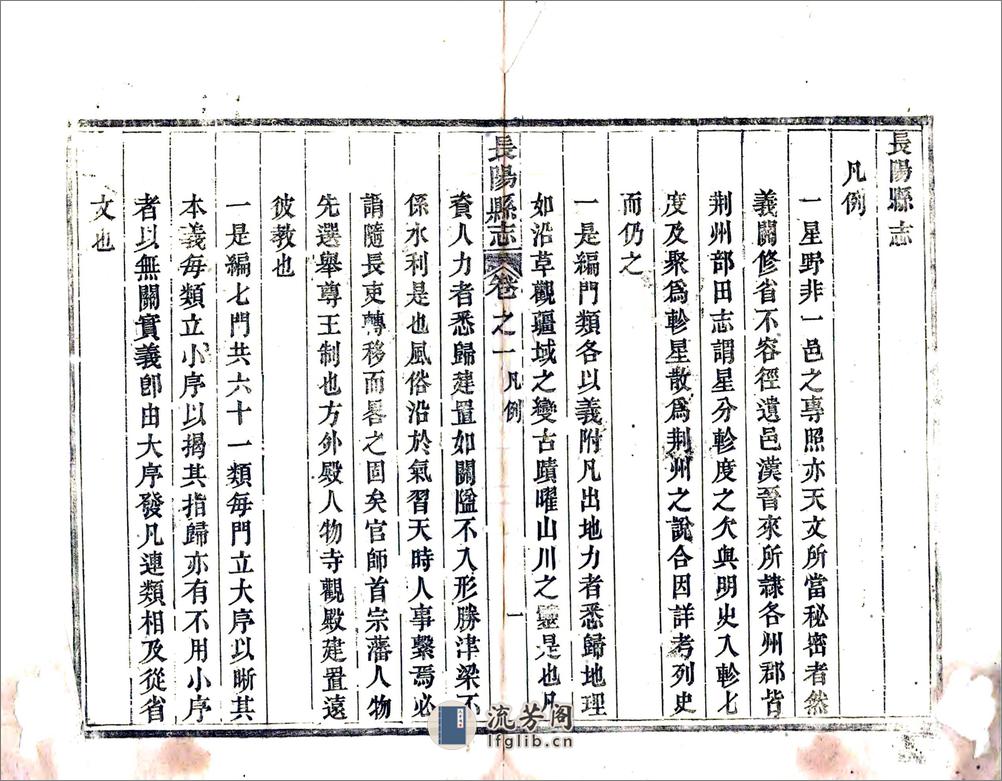 長陽縣志
凡例
一星野非一邑之專照亦天文所當秘密者然
義關修省不容徑遺邑漢晉來所隷各州郡皆
荆州部田志謂星分軫度之欠與明史入軫七
度及聚爲軫星散爲荆州之說合因詳考列史
而仍之
一是編門類各以義附凡出地力者悉歸地理
如沿草觀疆域之變古蹟曜山川之靈是也凡
長陽縣志 卷之一 凡例 一
資人力者悉歸建置如關隘不入形勝津梁不
係水利是也風俗沿於氣習天時人事繫焉必
謂隨長吏轉移而畧之固矣官師首宗藩人物
先選舉尊王制也方外殿人物寺觀殿建置遠
彼教也
一是編七門共六十一類每門立大序以晰其
本義每類立小序以揭其指歸亦有不用小序
者以無關實義卽由大序發凡連類相及從省
文也
流芳閣
lfglib.cn